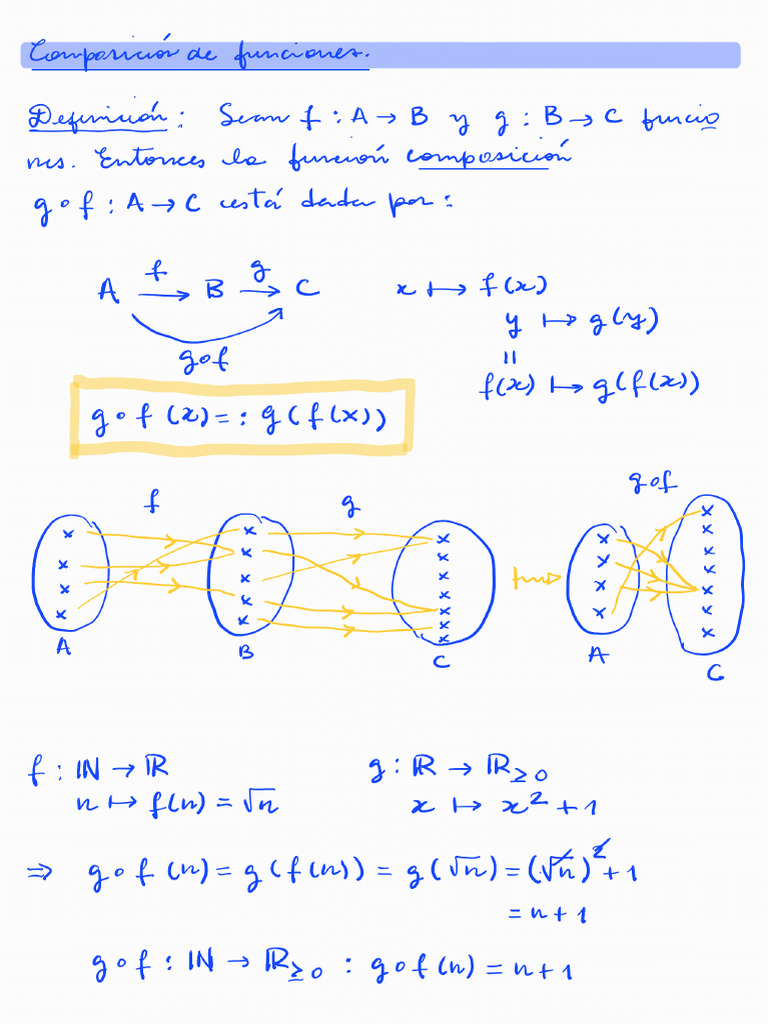 Composición de funciones.
Definición: Sean f : A → B y g : B → C funcio
nes. Entonces la función composición
g∘f : A → C está dada por:
A →f B →g C x ↦ f(x)
g∘f y ↦ g(y)
=
f(x) ↦ g(f(x))
g∘f (x) =: g(f(x))
f g g∘f
A B C A C
f : ℕ → ℝ g : ℝ → ℝ≥0
n ↦ f(n) = √n x ↦ x² + 1
⇒ g∘f (n) = g(f(n)) = g(√n) = (√n)² + 1
= n + 1
g∘f : ℕ → ℝ≥0 : g∘f(n) = n + 1